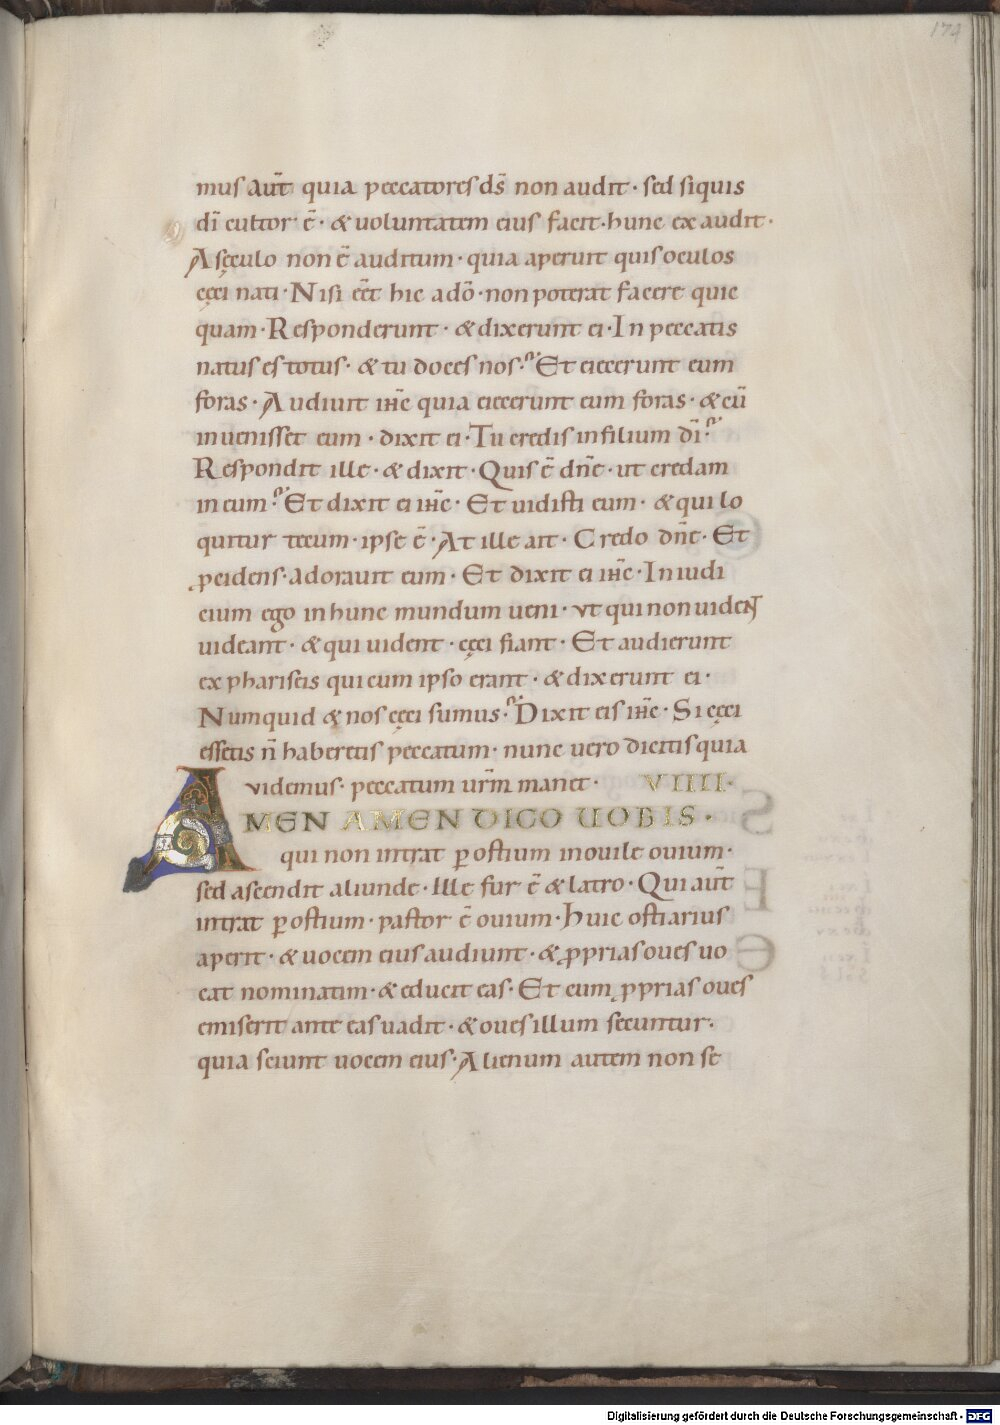 174
mus aut̄ quia peccatores ds̄ non audit · sed siquis
dī cultor ē · & uoluntatem eius facit · hunc exaudit ·
A sęculo non ē auditum · quia aperuit quis oculos
cęci nati · Nisi eēt hic a dō · non poterat facere quic
quam · Responderunt · & dixerunt ei · In peccatis
natus es totus · & tu doces nos · Et eiecerunt eum
foras · Audiuit ihc̄ quia eiecerunt eum foras · & cū
inuenisset eum · dixit ei · Tu credis in filium dī ·
Respondit ille · & dixit · Quis ē dn̄e · ut credam
in eum · Et dixit ei ihc̄ · Et uidisti eum · & qui lo
q̄uitur tecum · ipse ē · At ille ait · Credo dn̄e · Et
ꝓcidens · adorauit eum · Et dixit ei ihc̄ · In iudi
cium ego in hunc mundum ueni · ut qui non uideN̄T
uideant · & qui uident · cęci fiant · Et audierunt
ex phariseis qui cum ipso erant · & dixerunt ei ·
Numquid & nos cęci sumus · Dixit eis ihc̄ · Si cęci
essetis n̄ haberetis peccatum · nunc uero dicitis quia
videmus · peccatum urm̄ manet · VIIII ·
AMEN AMEN DICO UOBIS ·
qui non intrat ꝑ ostium in ouile ouium ·
sed ascendit aliunde · Ille fur ē & latro · Qui aut̄
intrat ꝑ ostium · pastor ē ouium · Huic ostiarius
aperit · & uocem eius audiunt · & ꝓprias oues uo
cat nominatim · & educit eas · Et cum ꝓprias oues
emiserit ante eas uadit · & oues illum secuntur ·
quia sciunt uocem eius · Alienum autem non se
Digitalisierung gefördert durch die Deutsche Forschungsgemeinschaft - DFG